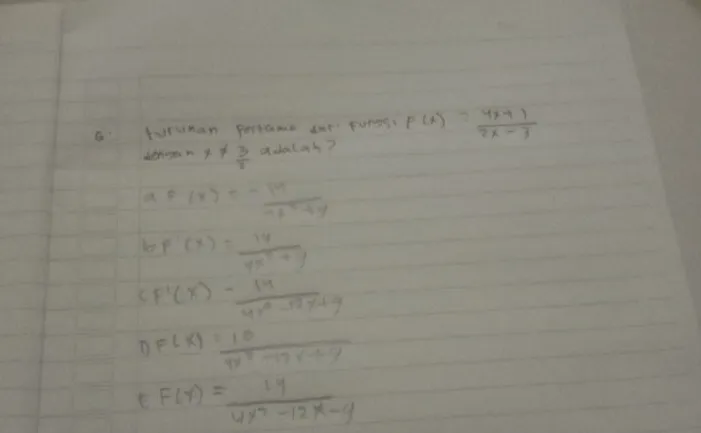 6. turunan pertama dari fungsi F(x) = 4x+1 / 2x-3
dengan x ≠ 3/2 adalah?
a F(x) = - 14
b F(x) = 14 / 4x² + 9
c F'(x) - 14 / 4x² - 12x + 9
D F(x) = 10 / 4x² - 12x + 9
e F(x) = 14 / 4x² - 12x - 9